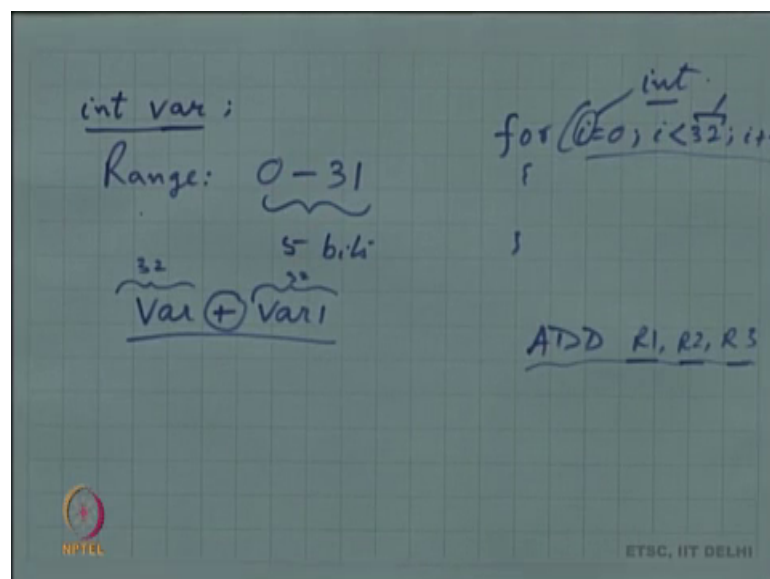 int var ;
Range: 0 - 31
5 bits
32 32
Var + Var1
int.
for (i=0; i<32; i+
{
}
ADD R1, R2, R3
NPTEL
ETSC, IIT DELHI